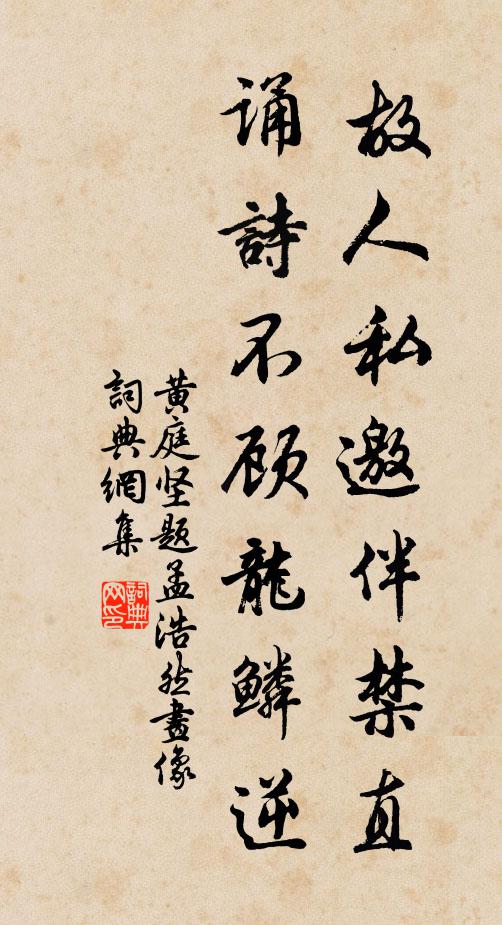 故人私邀伴禁直
诵詩不顾龍鱗逆
黄庭坚题孟浩然畫像
詞典網集
詞典网印